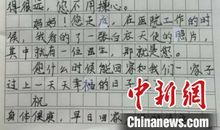 得很远，您不用操心。
妈妈！您走后，在医院工作的时
候，我看到了一张白衣天使的照片，
其中就有一位医生，那就是您。
您什么时候能回家和我们一家
过上一天天幸福的日子
祝
身体健康，早日回家
中新网
CHINANEWS.COM